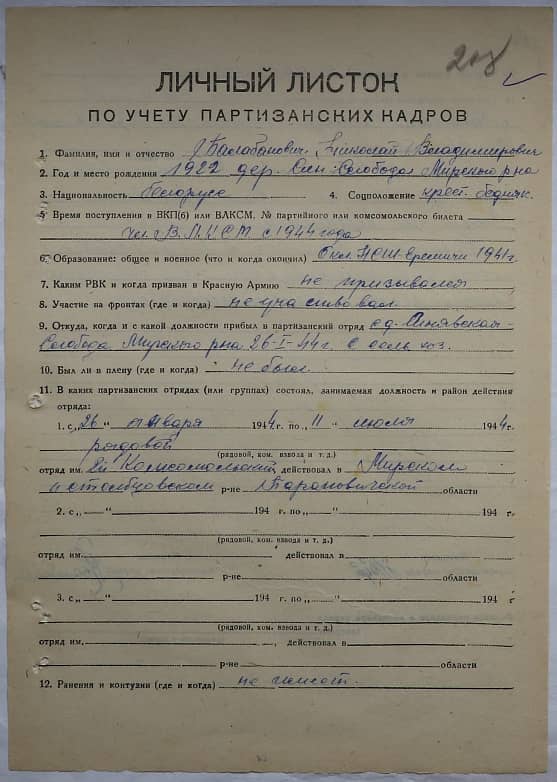 208
ЛИЧНЫЙ ЛИСТОК
ПО УЧЕТУ ПАРТИЗАНСКИХ КАДРОВ
1. Фамилия, имя и отчество Балабанович Николай Владимирович
2. Год и место рождения 1922 дер. Син-Слобода Мирского р-на
3. Национальность белорусс 4. Соцположение крест. бедняк.
5 Время поступления в ВКП(б) или ВЛКСМ, № партийного или комсомольского билета
чл. ВЛКСМ с 1944 года
6. Образование: общее и военное (что и когда окончил) Окон. НСШ-Еремичи 1941г.
7. Каким РВК и когда призван в Красную Армию не призывался
8. Участие на фронтах (где и когда) не участвовал
9. Откуда, когда и с какой должности прибыл в партизанский отряд с д. Синявская-
Слобода Мирского р-на 26-I-44г. с сель. хоз.
10. Был ли в плену (где и когда) не был.
11. В каких партизанских отрядах (или группах) состоял, занимаемая должность и район действия
отряда:
1. с „26" января 1944 г. по „11" июля 1944 г.
рядовой
(рядовой, ком. взвода и т. д.)
отряд им. Комсомольский, действовал в Мирском
и столбцовском р-не Барановичской области
2. с „ " 194 г. по „ " 194 г.
(рядовой, ком. взвода и т. д.)
отряд им. действовал в
р-не области
3. с „ " 194 г. по „ " 194 г
(рядовой, ком. взвода и т. д.)
отряд им. действовал в
р-не области
12. Ранения и контузии (где и когда) не имеет.